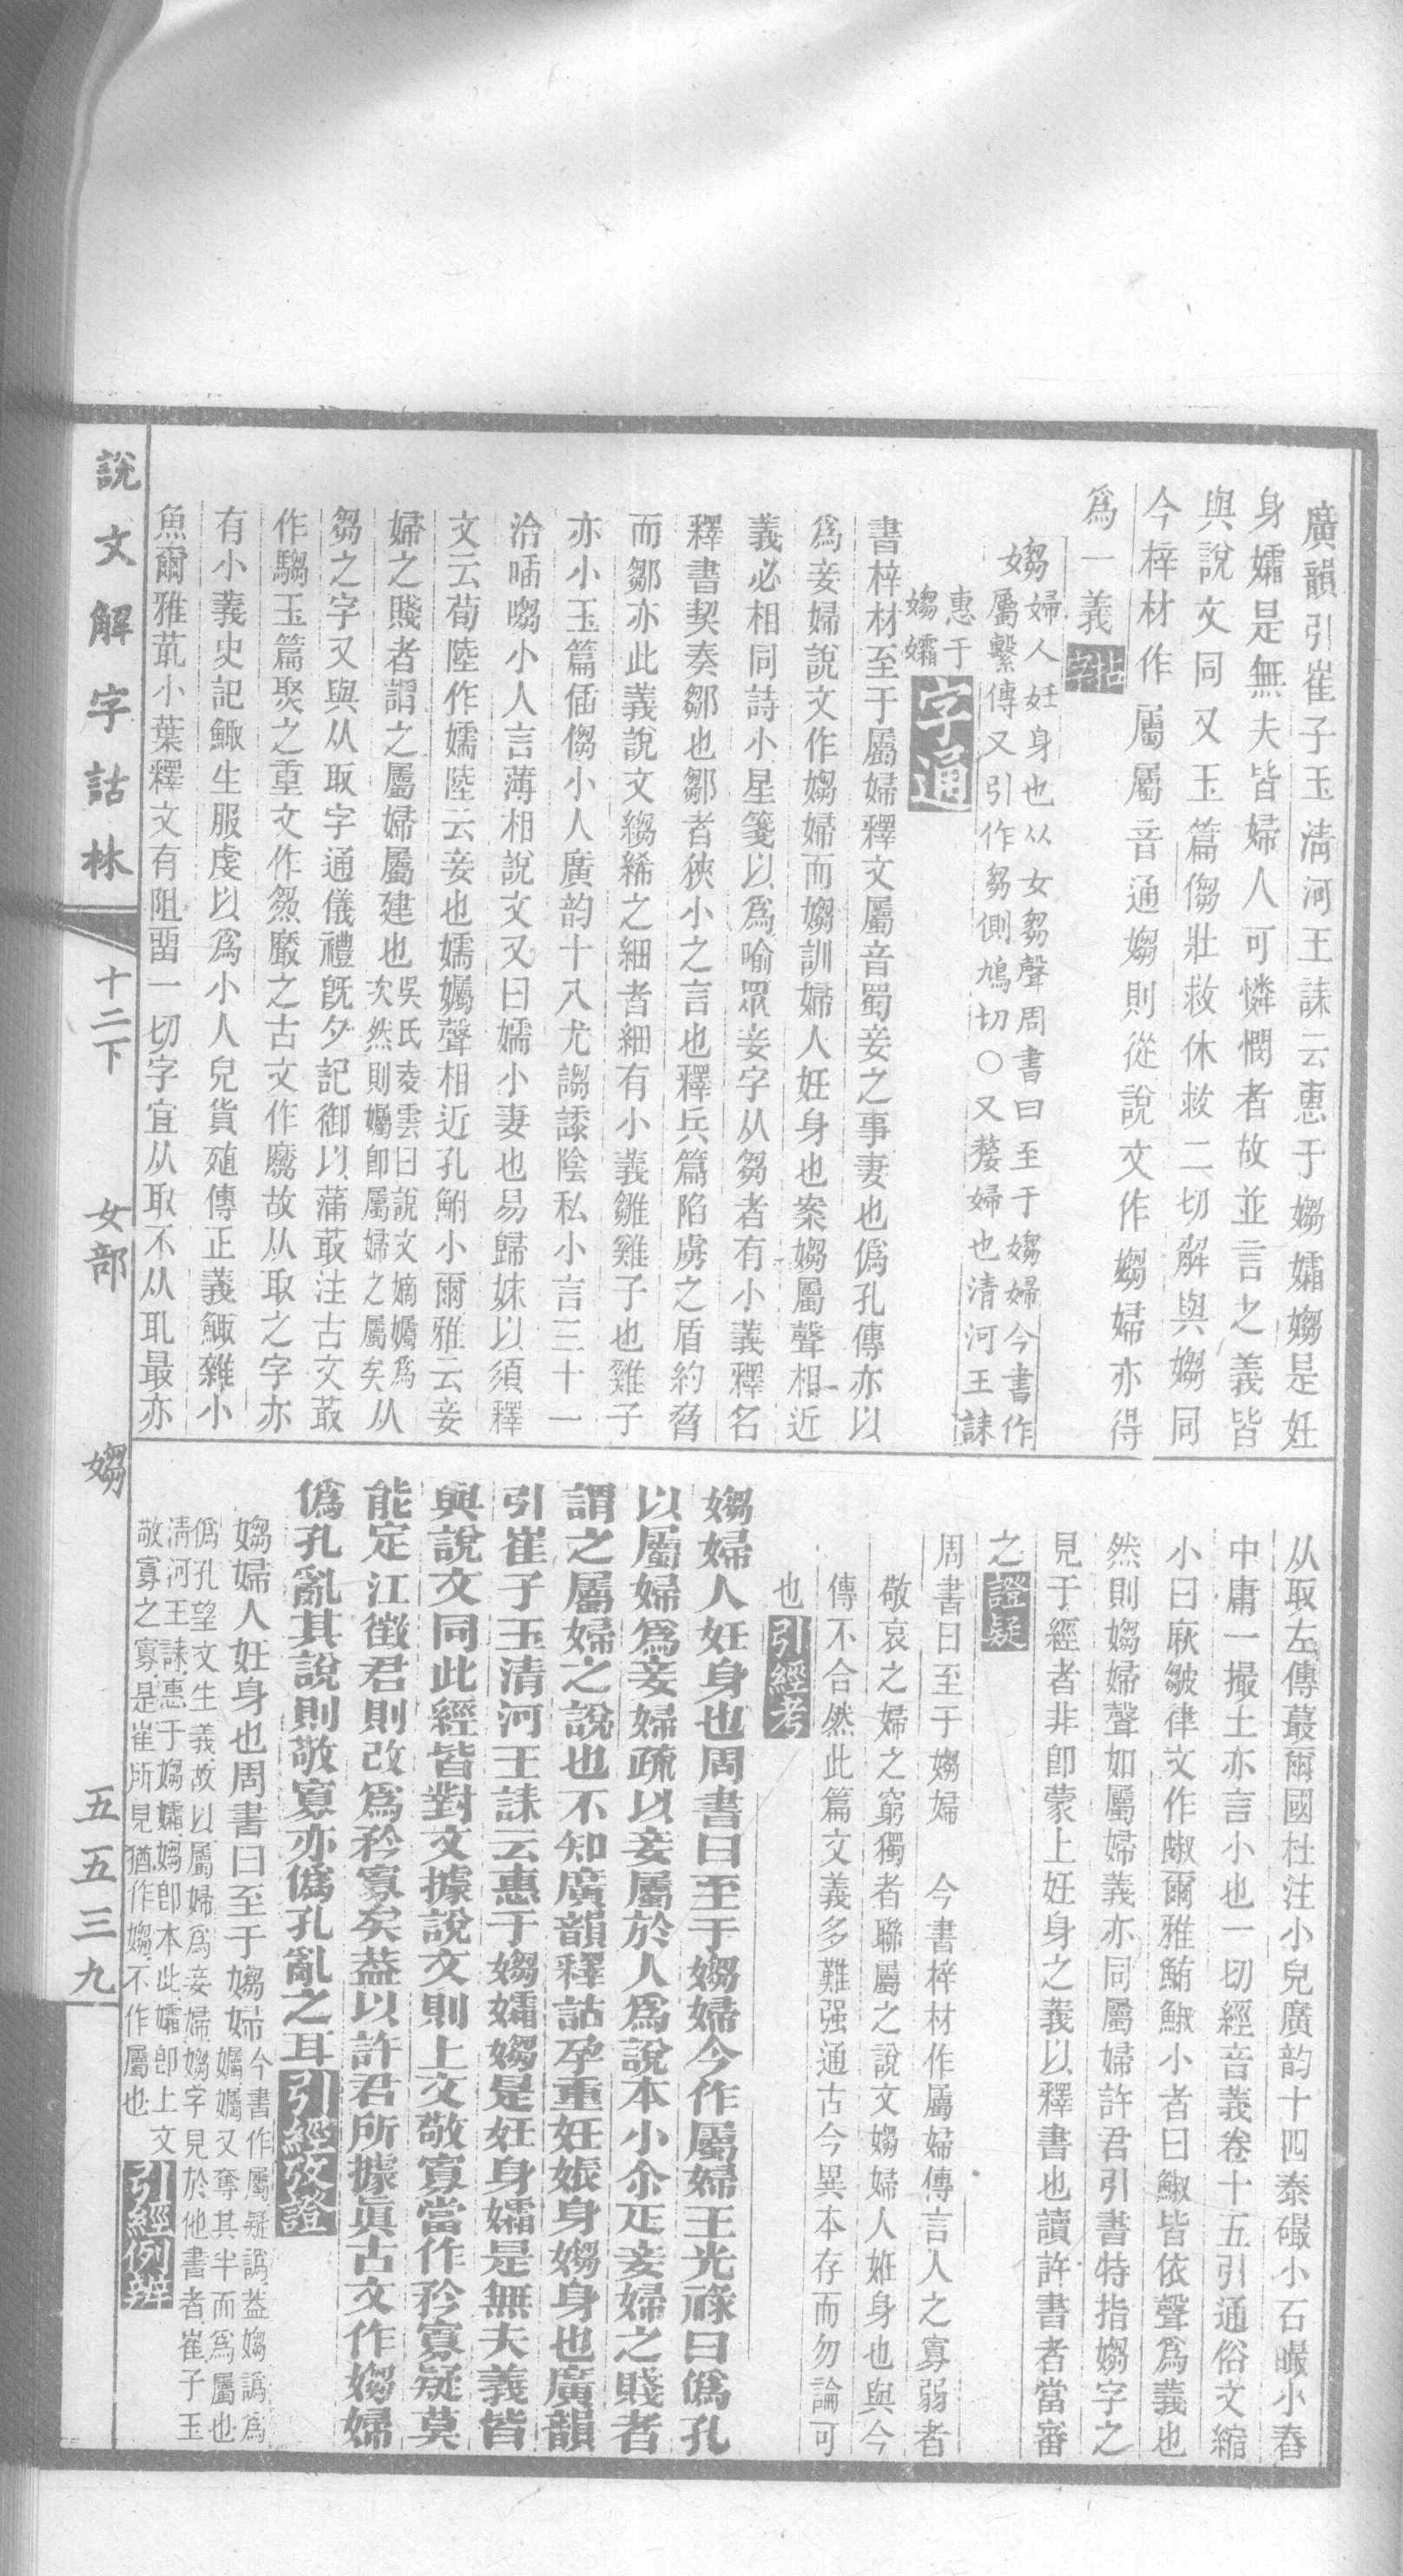 廣韻引崔子玉清河王誄云惠于媰孀媰是妊
身孀是無夫皆婦人可憐憫者故並言之義皆
與說文同又玉篇㑳壯救休救二切解與媰同
今梓材作屬屬音通媰則從說文作媰婦亦得
爲一義 古字
媰婦人妊身也从女芻聲周書曰至于媰婦今書作
屬繫傳又引作芻側鳩切○又嫠婦也清河王誄
惠于
媰孀 字通
書梓材至于屬婦釋文屬音蜀妾之事妻也僞孔傳亦以
爲妾婦說文作媰婦而媰訓婦人妊身也案媰屬聲相近
義必相同詩小星箋以爲喻眾妾字从芻者有小義釋名
釋書契奏鄒也鄒者狹小之言也釋兵篇陷虜之盾約脅
而鄒亦此義說文縐絺之細者細有小義雛雞子也雞子
亦小玉篇偛㑳小人廣韵十八尤謅䛢陰私小言三十一
洽㖞㗙小人言薄相說文又曰嬬小妻也易歸妹以須釋
文云荀陸作嬬陸云妾也嬬孎聲相近孔鮒小爾雅云妾
婦之賤者謂之屬婦屬建也吳氏夌雲曰說文嫡孎爲
次然則孎卽屬婦之屬矣从
芻之字又與从取字通儀禮旣夕記御以蒲菆注古文菆
作騶玉篇㷅之重文作㷅嚴之古文作䊝故从取之字亦
有小義史記鯫生服虔以爲小人皃貨殖傳正義鯫雜小
魚爾雅菆小葉釋文有阻留一切字宜从取不从耴最亦
从取左傳蕞爾國杜注小皃廣韵十四泰礒小石嘬小舂
中庸一撮土亦言小也一切經音義卷十五引通俗文縮
小曰瘷皺律文作㾭爾雅鮪鮛小者曰鮛皆依聲爲義也
然則媰婦聲如屬婦義亦同屬婦許君引書特指媰字之
見于經者非卽蒙上妊身之義以釋書也讀許書者當審
之 證疑
周書曰至于媰婦 今書梓材作屬婦傳言人之寡弱者
敬哀之婦之窮獨者聯屬之說文媰婦人姙身也與今
傳不合然此篇文義多難强通古今異本存而勿論可
也 引經考
媰婦人妊身也周書曰至于媰婦今作屬婦王光祿曰僞孔
以屬婦爲妾婦疏以妾屬於人爲說本小尒疋妾婦之賤者
謂之屬婦之說也不知廣韻釋詁孕重妊娠身媰身也廣韻
引崔子玉清河王誄云惠于媰孀媰是妊身孀是無夫義皆
與說文同此經皆對文據說文則上文敬寡當作矜寡疑莫
能定江徵君則改爲矜寡矣葢以許君所據眞古文作媰婦
僞孔亂其說則敬寡亦僞孔亂之耳 引經攷證
媰婦人妊身也周書曰至于媰婦今書作屬疑譌葢媰譌爲
孎孎又奪其半而爲屬也
僞孔望文生義故以屬婦爲妾婦媰字見於他書者崔子玉
清河王誄惠于媰孀媰卽本此孀卽上文
敬寡之寡是崔所見猶作媰不作屬也 引經例辨
說文解字詁林 十二下 女部 媰 五五三九